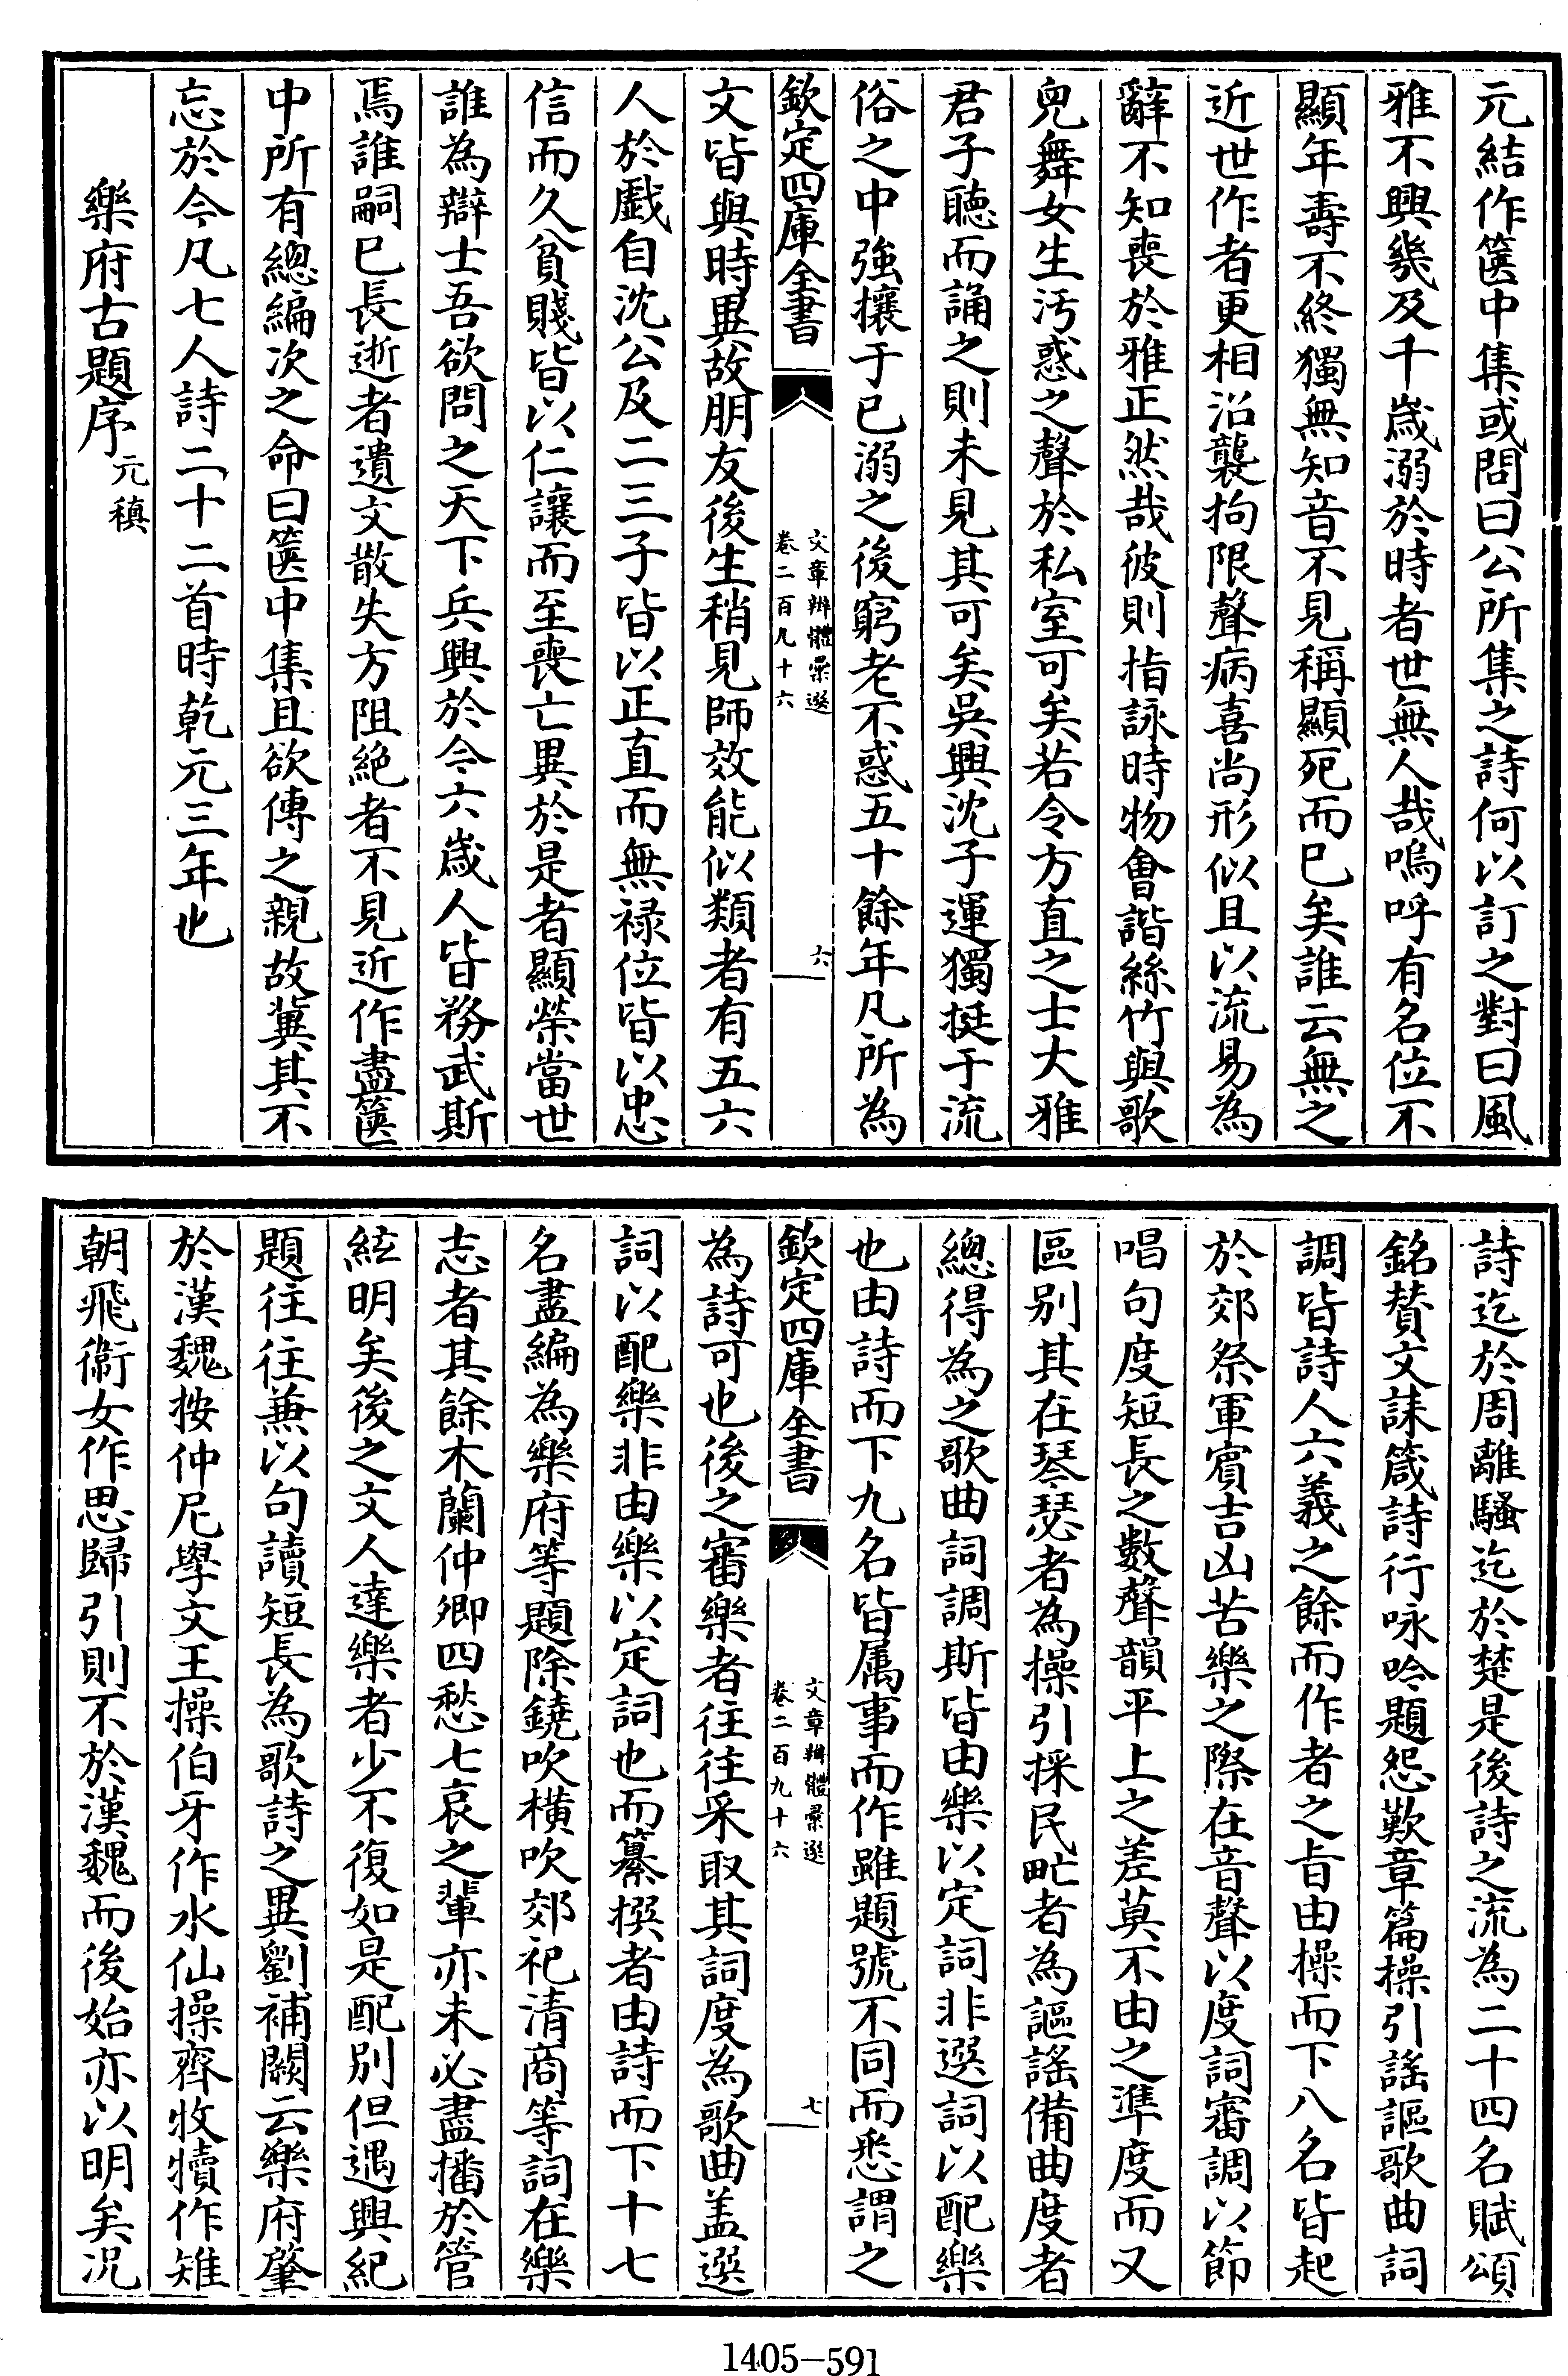 元結作篋中集或問曰公所集之詩何以訂之對曰風
雅不興幾及千歲溺於時者世無人哉嗚呼有名位不
顯年壽不終獨無知音不見稱顯死而已矣誰云無之
近世作者更相沿襲拘限聲病喜尚形似且以流易為
辭不知喪於雅正然哉彼則指詠時物會諧絲竹與歌
兒舞女生汚惑之聲於私室可矣若令方直之士大雅
君子聽而誦之則未見其可矣吳興沈子運獨挺于流
俗之中強攘于已溺之後窮老不惑五十餘年凡所為
欽定四庫全書
文章辨體彚選
卷二百九十六
六
文皆與時異故朋友後生稍見師效能似類者有五六
人於戲自沈公及二三子皆以正直而無禄位皆以忠
信而久貧賤皆以仁讓而至喪亡異於是者顯榮當世
誰為辯士吾欲問之天下兵興於今六歲人皆務武斯
焉誰嗣已長逝者遺文散失方阻絶者不見近作盡篋
中所有總編次之命曰篋中集且欲傳之親故冀其不
忘於今凡七人詩二十二首時乾元三年也
樂府古題序元稹
詩迄於周離騷迄於楚是後詩之流為二十四名賦頌
銘賛文誄箴詩行咏吟題怨歎章篇操引謠謳歌曲詞
調皆詩人六義之餘而作者之旨由操而下八名皆起
於郊祭軍賓吉凶苦樂之際在音聲以度詞審調以節
唱句度短長之數聲韻平上之差莫不由之準度而又
區别其在琴瑟者為操引採民甿者為謳謠備曲度者
總得為之歌曲詞調斯皆由樂以定詞非選詞以配樂
也由詩而下九名皆属事而作雖題號不同而悉謂之
欽定四庫全書
文章辨體彚選
卷二百九十六
七
為詩可也後之審樂者往往采取其詞度為歌曲盖選
詞以配樂非由樂以定詞也而纂撰者由詩而下十七
名盡編為樂府等題除鐃吹横吹郊祀清商等詞在樂
志者其餘木蘭仲卿四愁七哀之輩亦未必盡播於管
絃明矣後之文人達樂者少不復如是配别但遇興紀
題往往兼以句讀短長為歌詩之異劉補闕云樂府肇
於漢魏按仲尼學文王操伯牙作水仙操齊牧犢作雉
朝飛衞女作思歸引則不於漢魏而後始亦以明矣况
1405-591